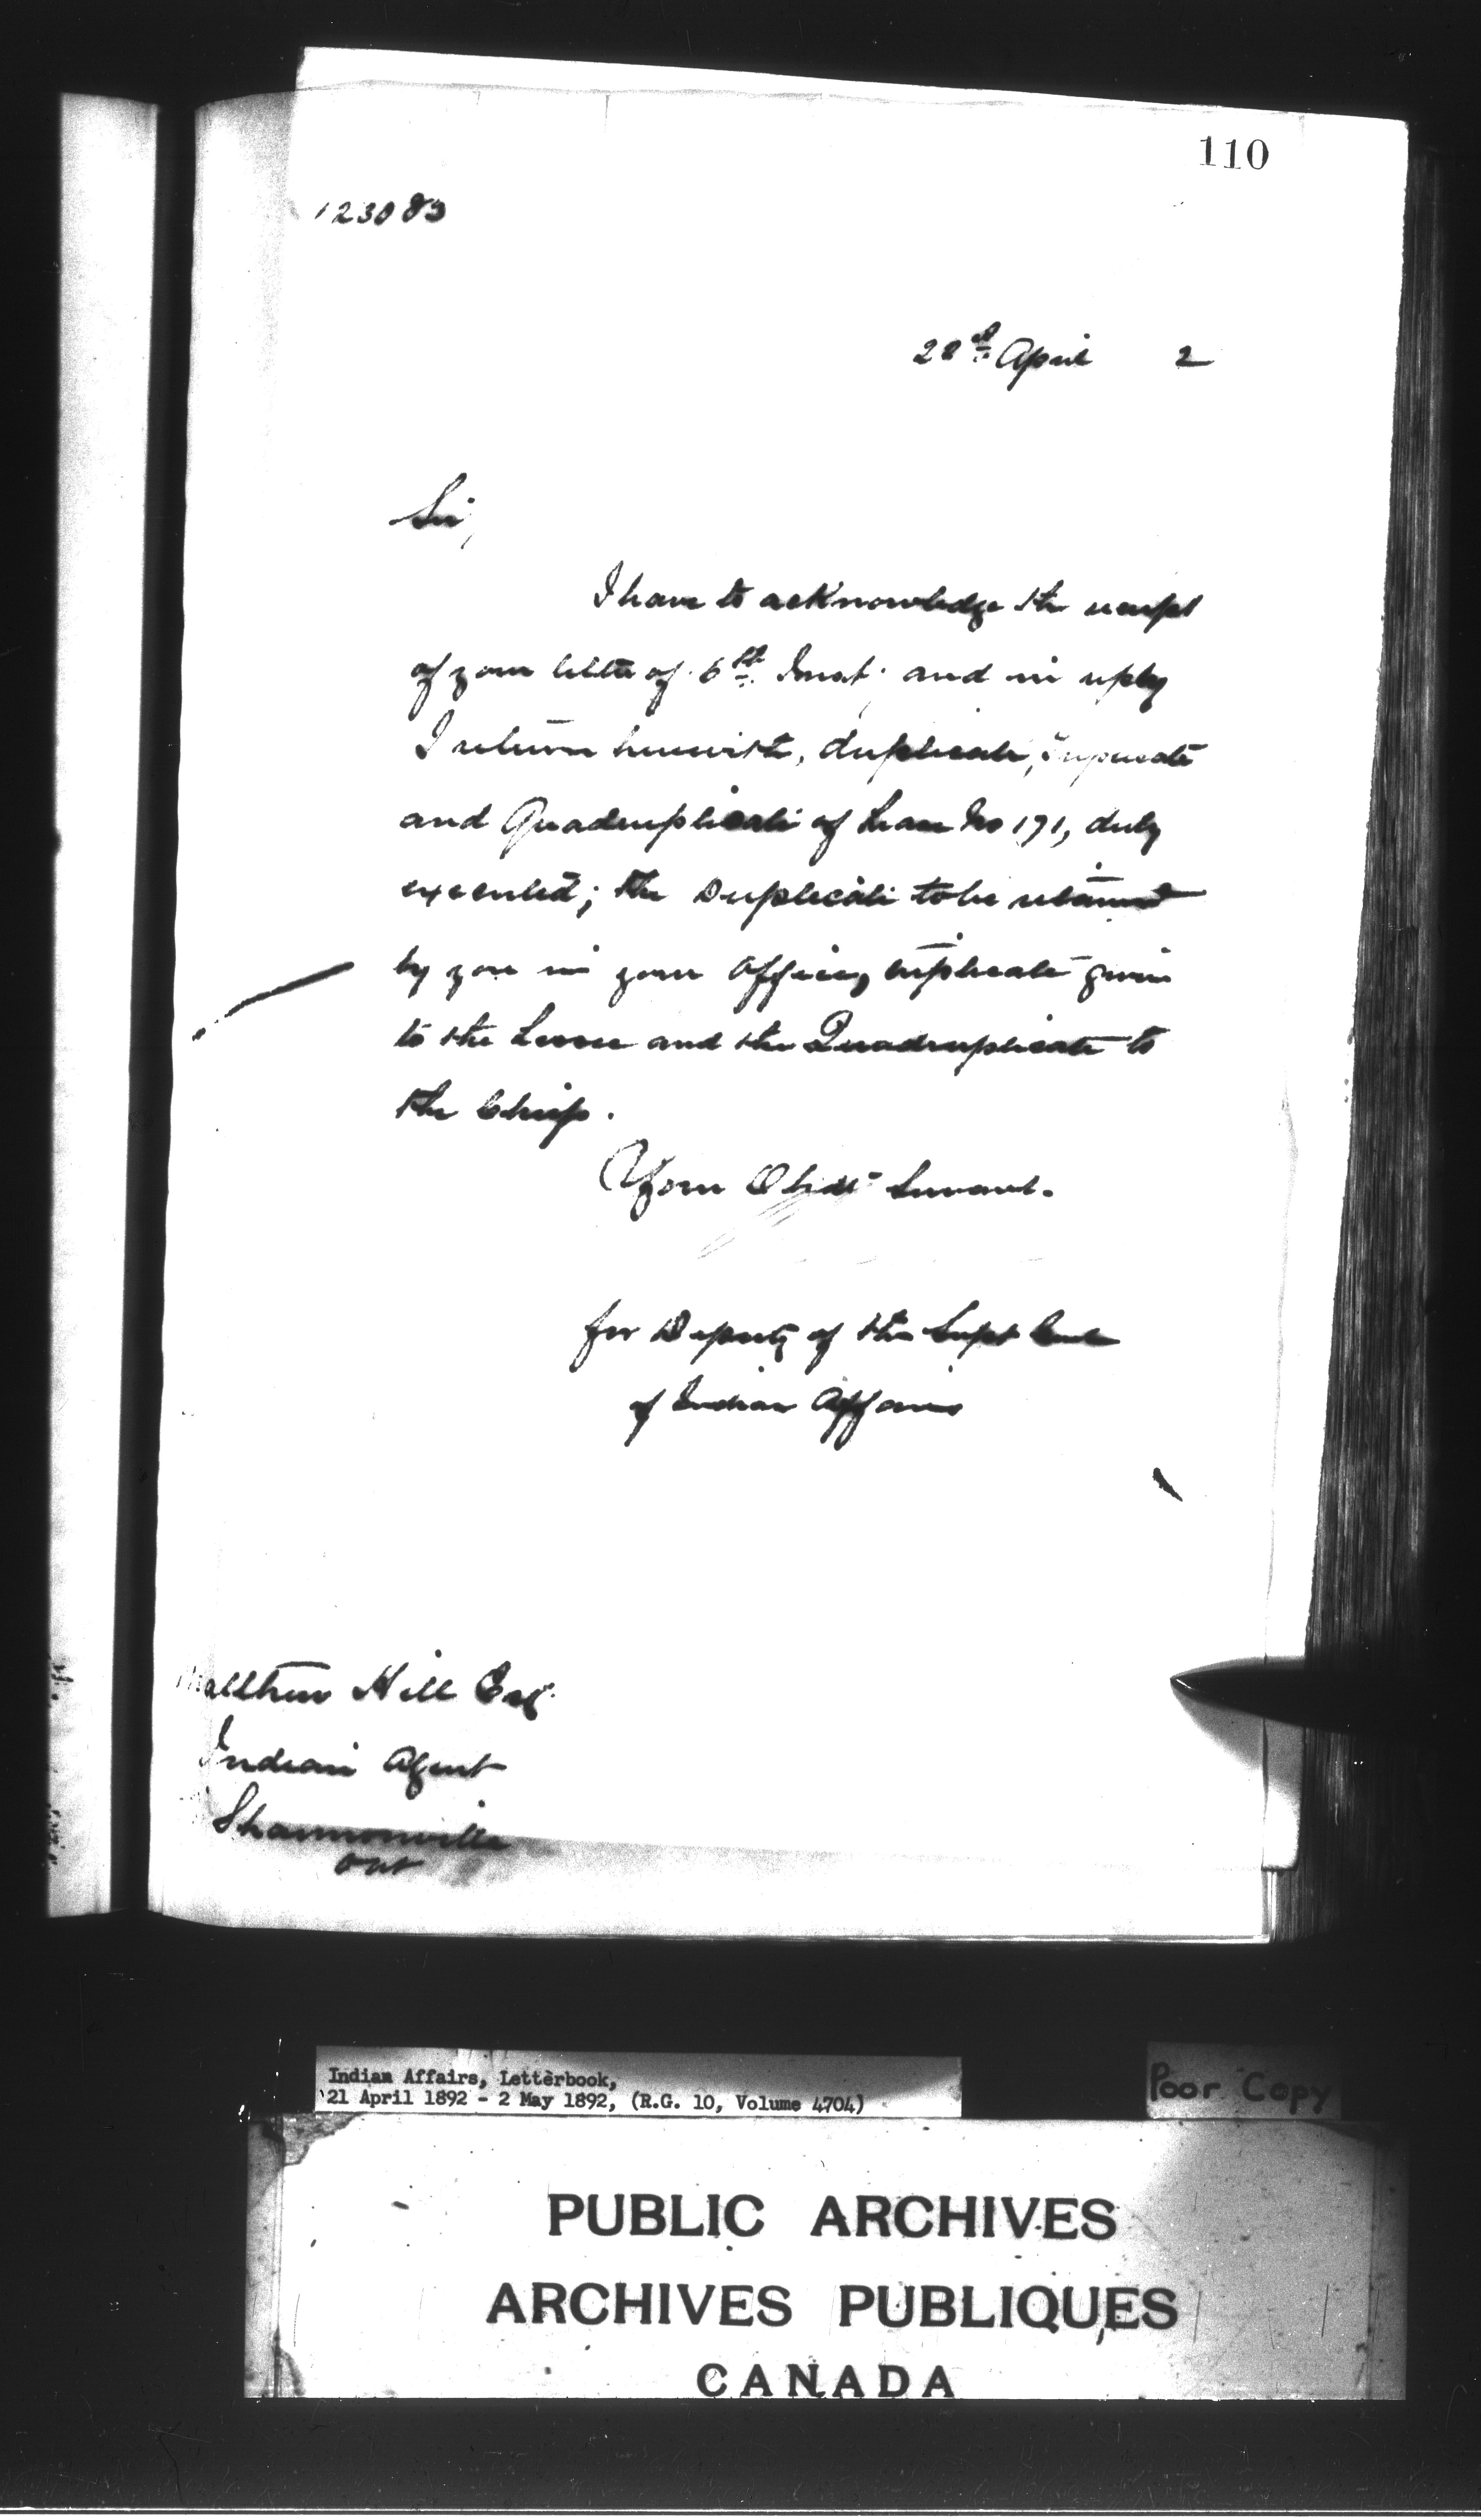 110
123083
22nd April 2
Sir,
I have to acknowledge the receipt
of your letter of 6th Inst. and in reply
I return herewith, duplicate, triplicate
and Quadruplicate of Lease No 171, duly
executed; the Duplicate to be retained
by you in your office, triplicate given
to the Lessee and the Quadruplicate to
the Chiefs.
Your Obdt Servant.
for Deputy of the Supt Genl
of Indian Affairs
Matthew Hill Esq.
Indian Agent
Shannonville
Ont
Indian Affairs, Letterbook,
21 April 1892 - 2 May 1892, (R.G. 10, Volume 4704)
Poor Copy
PUBLIC ARCHIVES
ARCHIVES PUBLIQUES
CANADA